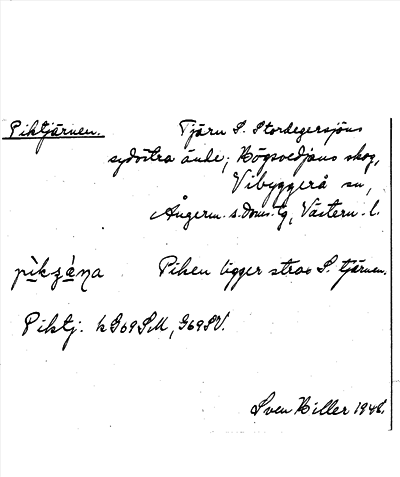 Piktjärnen. Tjärn S. Stordegersjöns
sydöstra ände, Högsvedjans skog,
Vibyggerå sn,
Ångerm. s. Doms-tg, Västern. l.
Piken ligger strax S. tjärnen.
Piktj. k G69SM, G69SV.
Sven Hiller 1948.